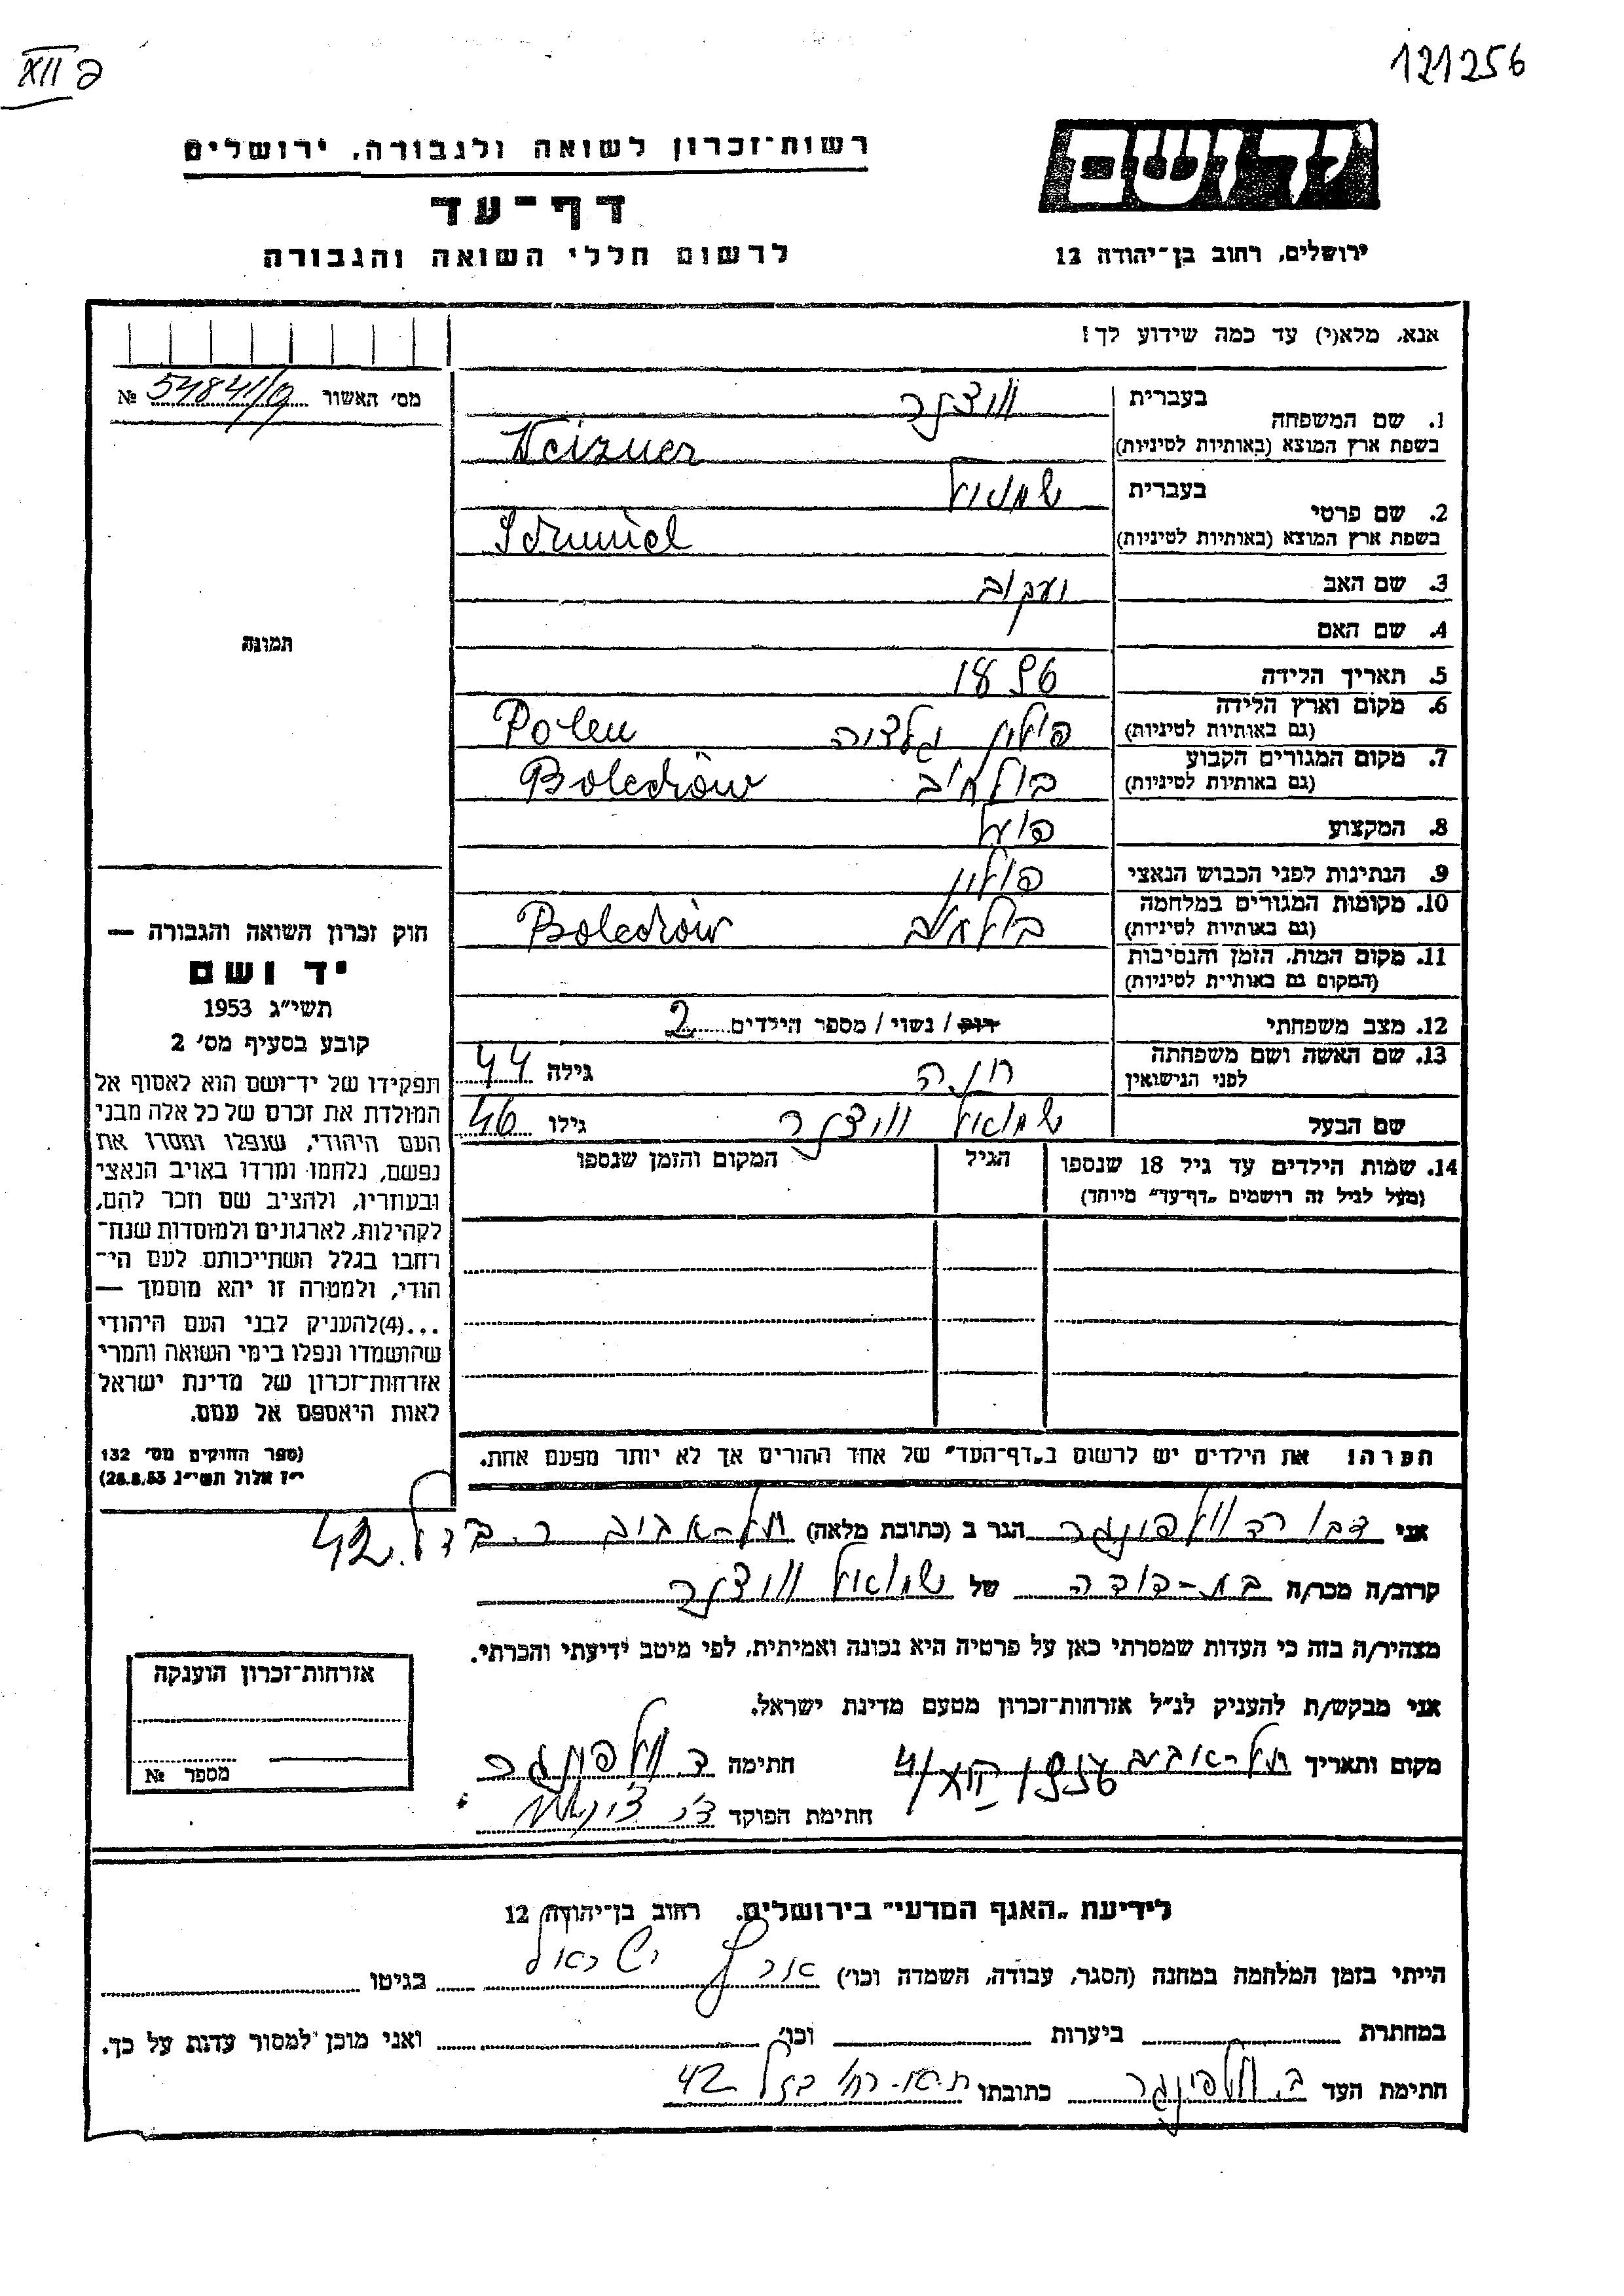 XII פ
121256
רשות־זכרון לשואה ולגבורה, ירושלים
דף־עד
לרשום חללי השואה והגבורה
יד ושם
ירושלים, רחוב בן־יהודה 12
אנא, מלא(י) עד כמה שידוע לך!
מס' האשור 54841/פ №
1. שם המשפחה
בעברית
בשפת ארץ המוצא (באותיות לטיניות)
Weizner
2. שם פרטי
בעברית שמואל
בשפת ארץ המוצא (באותיות לטיניות)
3. שם האב יעקוב
4. שם האם
5. תאריך הלידה 1896
6. מקום וארץ הלידה
(גם באותיות לטיניות) פולין Polen
7. מקום המגורים הקבוע
(גם באותיות לטיניות) Bolechów
8. המקצוע פועל
9. הנתינות לפני הכבוש הנאצי פולין
10. מקומות המגורים במלחמה
(גם באותיות לטיניות) Bolechów
11. מקום המות, הזמן והנסיבות
(המקום גם באותיות לטיניות)
12. מצב משפחתי רוק / נשוי / מספר הילדים 2
13. שם האשה ושם משפחתה
לפני הנישואין חנה גילה 44
שם הבעל שמואל גילו 46
14. שמות הילדים עד גיל 18 שנספו
(מעל לגיל זה רושמים „דף־עד" מיוחד)
הגיל
המקום והזמן שנספו
תמונה
חוק זכרון השואה והגבורה —
יד ושם
תשי"ג 1953
קובע בסעיף מס' 2
תפקידו של יד־ושם הוא לאסוף אל
המולדת את זכרם של כל אלה מבני
העם היהודי, שנפלו ומסרו את
נפשם, נלחמו ומרדו באויב הנאצי
ובעוזריו, ולהציב שם וזכר להם,
לקהילות, לארגונים ולמוסדות שנח־
רחבו בגלל השתייכותם לעם הי־
הודי, ולמטרה זו יהא מוסמך —
...(4)להעניק לבני העם היהודי
שהושמדו ונפלו בימי השואה והמרי
אזרחות־זכרון של מדינת ישראל
לאות היאספם אל עמם.
(ספר החוקים מס' 132
י"ז אלול תשי"ג 28.8.53)
הערה! את הילדים יש לרשום ב„דף־העד" של אחד ההורים אך לא יותר מפעם אחת.
אני דבורה הגר ב (כתובת מלאה) תל-אביב 42
קרוב/ה מכר/ה בת-דודה של שמואל
מצהיר/ה בזה כי העדות שמסרתי כאן על פרטיה היא נכונה ואמיתית, לפי מיטב ידיעתי והכרתי.
אני מבקש/ת להעניק לנ"ל אזרחות־זכרון מטעם מדינת ישראל.
מקום ותאריך תל-אביב חתימה
חתימת הפוקד
אזרחות־זכרון הוענקה
מספר №
לידיעת „האגף המדעי" בירושלים, רחוב בן־יהודה 12
הייתי בזמן המלחמה במחנה (הסגר, עבודה, השמדה וכו') ארץ ישראל בגיטו
במחתרת ביערות וכו' ואני מוכן למסור עדות על כך.
חתימת העד כתובתו 42